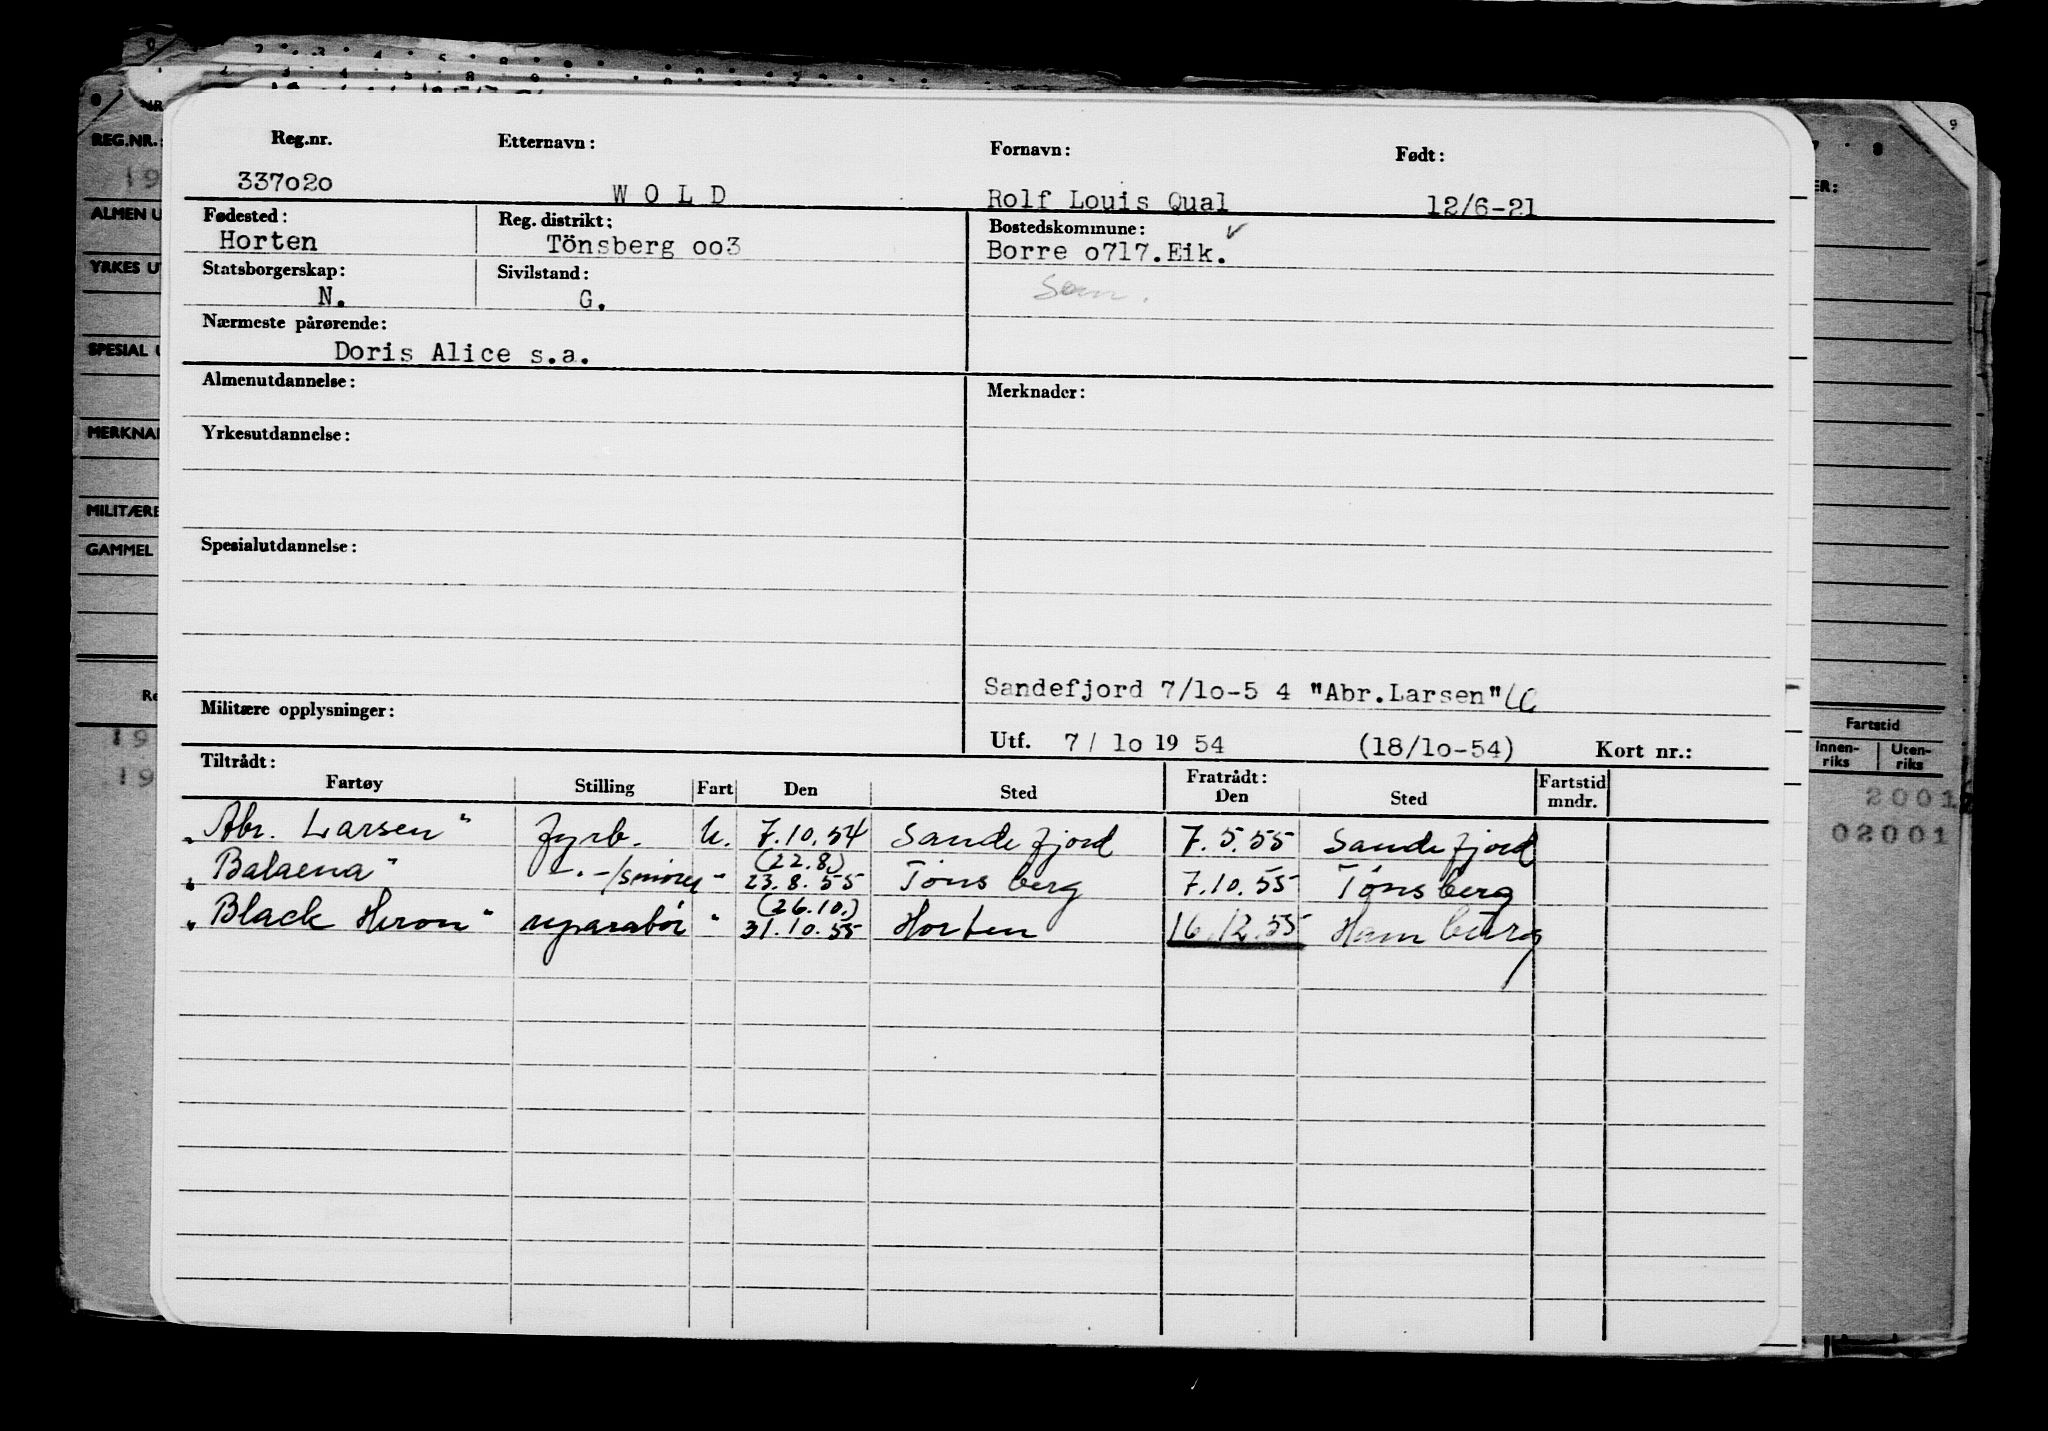 Reg.nr. Etternavn: Fornavn: Født:
337020 WOLD Rolf Louis Qual 12/6-21
Fødested: Reg. distrikt: Bostedskommune:
Horten Tönsberg oo3 Borre o717.Eik.
Statsborgerskap: Sivilstand:
N. G.
Nærmeste pårørende:
Doris Alice s.a.
Almenutdannelse: Merknader:
Yrkesutdannelse:
Spesialutdannelse:
Sandefjord 7/lo-5 4 "Abr.Larsen"
Militære opplysninger:
Utf. 7/ lo 19 54 (18/lo-54) Kort nr.:
Tiltrådt: Fratrådt:
Fartøy Stilling Fart Den Sted Den Sted Fartstid mndr.
"Abr. Larsen" fyrb. U. 7.10.54 Sandefjord 7.5.55 Sandefjord
(22.8)
"Balaena" -.-/smører " 23.8.55 Tønsberg 7.10.55 Tønsberg
(26.10.)
"Black Heron" reparatør " 31.10.55 Horten 16.12.55 Hamburg
REG.NR.:
19
ALMEN U
YRKES UT
SPESIAL U
MERKNAD
MILITÆRE
GAMMEL
Re
19
19
ER:
Fartstid
Innen-riks Uten-riks
2001
02001